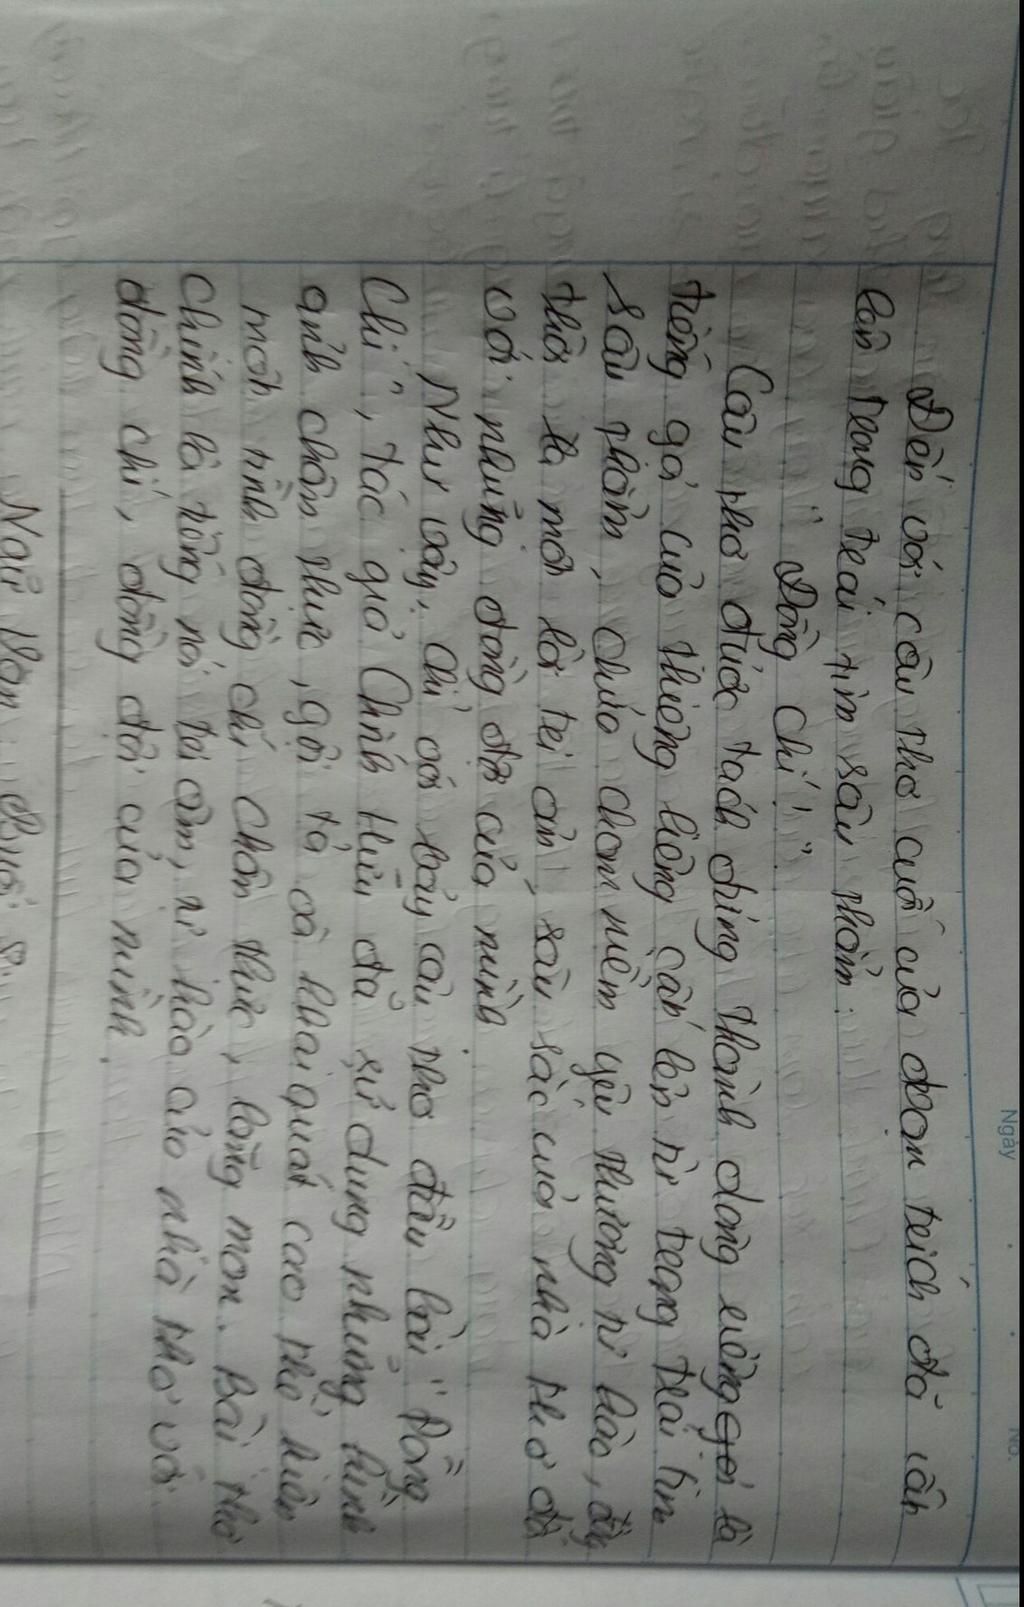 Ngày
No.
Đến với câu thơ cuối của đoạn trích đã lần
lên trong trái tim sâu thẳm:
" Đồng chí! "
Câu thơ được tách đứng thành dòng riêng gọi là
tiếng gọi của thiêng liêng cất lên từ trong trái tim
sâu thẳm, chứa chan niềm yêu thương tự hào, đây
thời là một lời tri ân, sâu sắc của nhà thơ đối
với những đồng đội của mình
Như vậy, chỉ với bảy câu thơ đầu bài " Đồng
Chí ", tác giả Chính Hữu đã sử dụng những hình
ảnh chân thực, gợi tả và khái quát cao thể hiện
một tình đồng chí chân thực, lãng mạn. Bài thơ
chính là tiếng nói tri âm, tự hào của nhà thơ với
đồng chí, đồng đội của mình.
Ngữ Văn